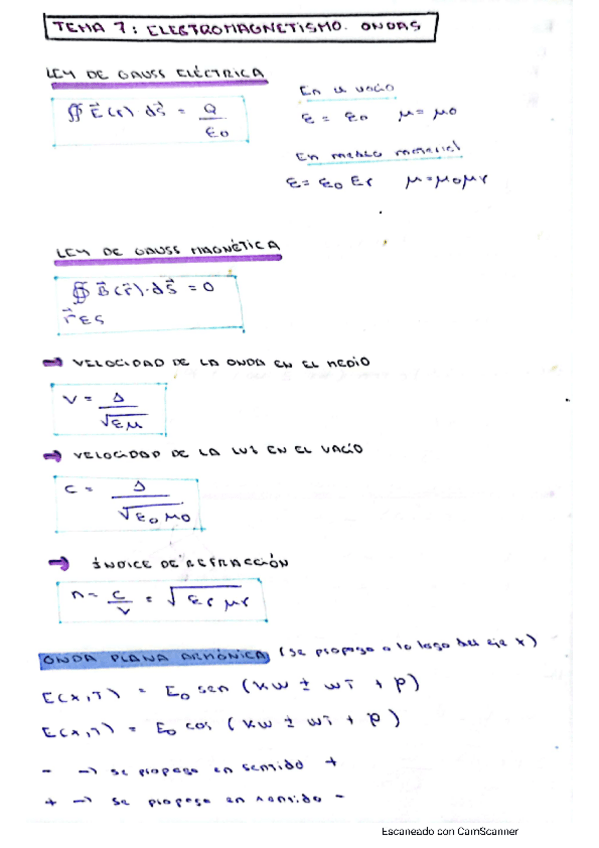 TEMA 7: ELECTROMAGNETISMO. ONDAS
LEY DE GAUSS ELÉCTRICA
∯ E⃗(r) dS⃗ = Q / ε0
En el vacío
ε = ε0 μ = μ0
En medio material
ε = ε0 εr μ = μ0 μr
LEY DE GAUSS MAGNÉTICA
∯ B⃗(r⃗)·dS⃗ = 0
r⃗ ES
→ VELOCIDAD DE LA ONDA EN EL MEDIO
V = 1 / √εμ
→ VELOCIDAD DE LA LUZ EN EL VACÍO
C = 1 / √ε0 μ0
→ ÍNDICE DE REFRACCIÓN
n = C / V = √εr μr
ONDA PLANA ARMÓNICA (se propaga a lo lago del eje x)
E(x,T) = E0 sen (kw ± wT + φ)
E(x,T) = E0 cos (kw ± wT + φ)
- → se propaga en sentido +
+ → se propaga en sentido -
Escaneado con CamScanner